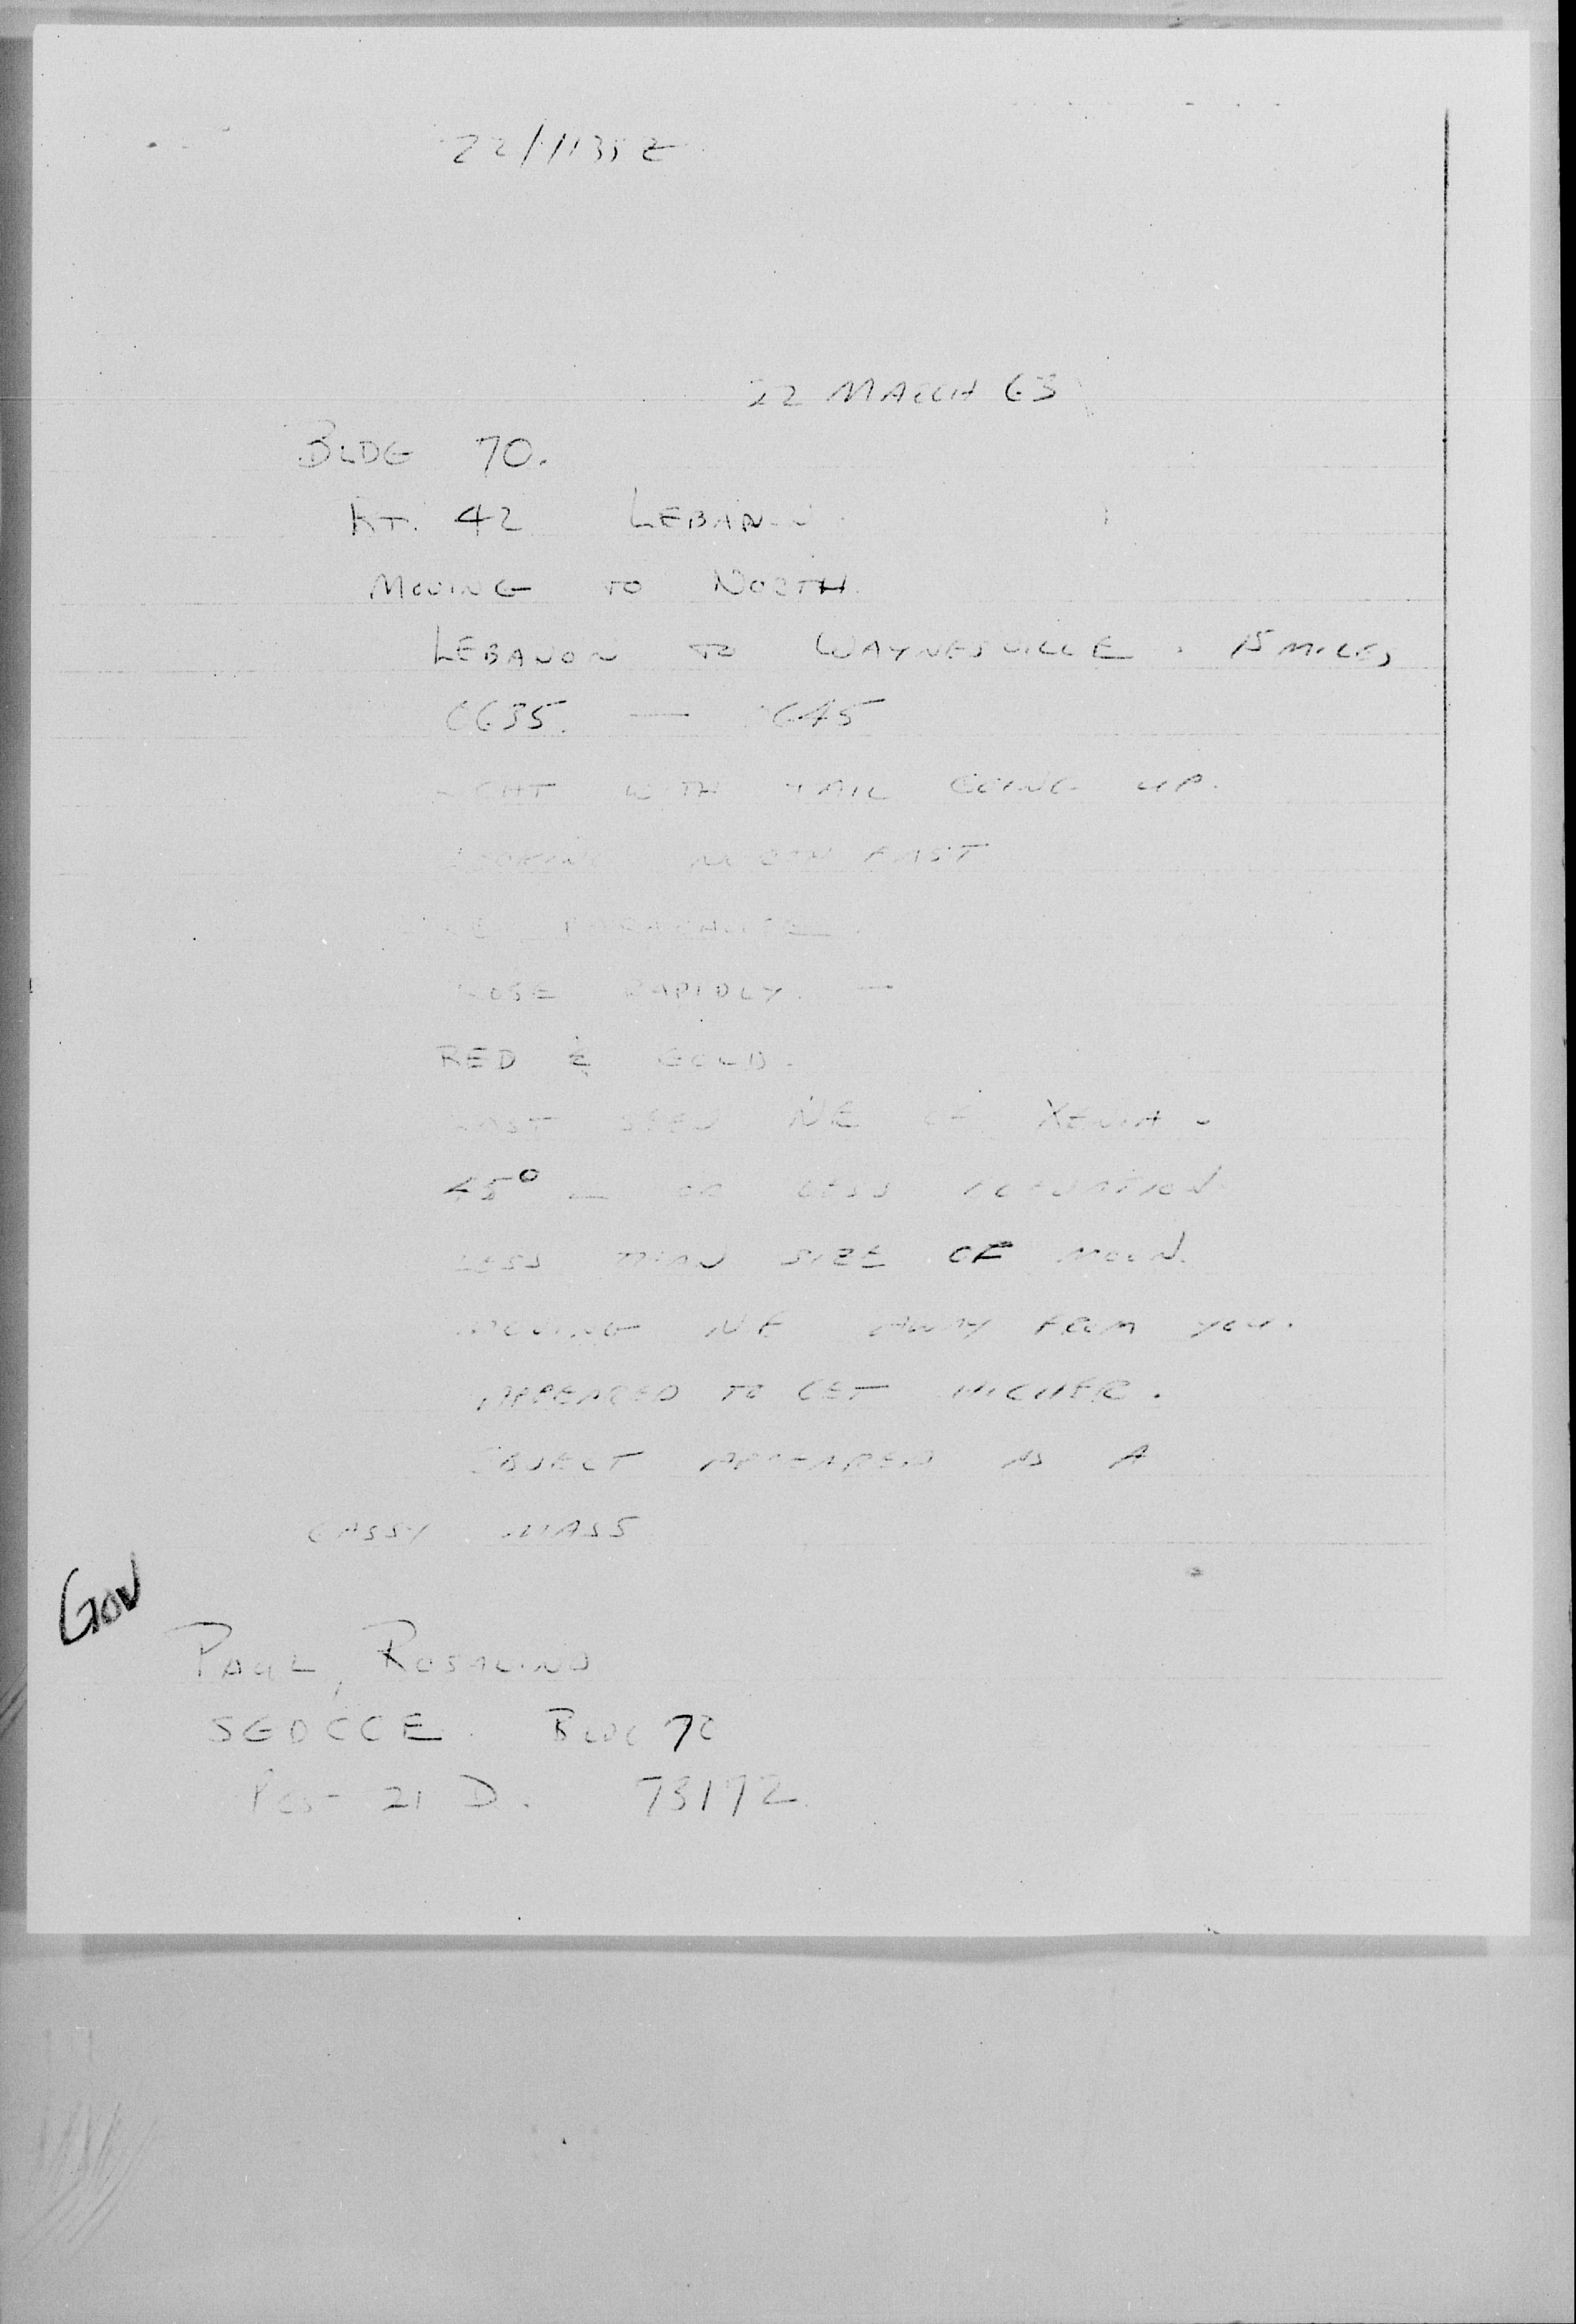 22/1135Z
22 MARCH 63
BLDG 70.
RT. 42 LEBANON
MOVING TO NORTH.
LEBANON TO WAYNESVILLE. 15 MILES
0635. — 0645
LIGHT WITH TAIL GOING UP.
LOOKING NORTH EAST
PARACHUTE
ROSE RAPIDLY. —
RED & GOLD.
LAST SEEN NE OF XENIA -
45° — OR LESS ELEVATION
LESS THAN SIZE OF MOON.
MOVING NE AWAY FROM YOU.
APPEARED TO GET HIGHER.
OBJECT APPEARED AS A
GASSY MASS
GOV
PAUL, ROSALIND
BLDG 70
21 D. 73192